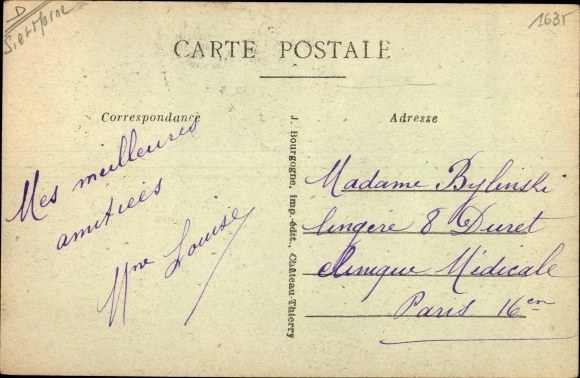 D
1635
CARTE POSTALE
Correspondance
Adresse
J. Bourgogne, Imp.-édit., Château-Thierry
Mes meilleures
amitiées
Mme Louise
Madame Bylinski
lingère 8 Duret
clinique Médicale
Paris 16en